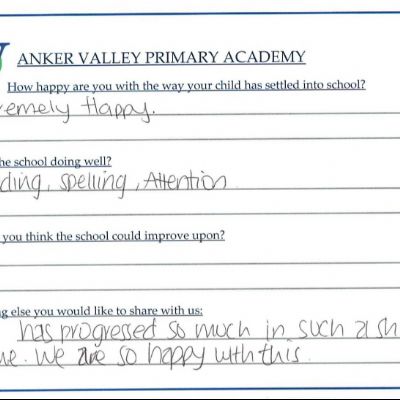 ANKER VALLEY PRIMARY ACADEMY
How happy are you with the way your child has settled into school?
remely Happy.
he school doing well?
ding, spelling, Attention
you think the school could improve upon?
g else you would like to share with us:
has progressed so much in such a sh
me. We are so happy with this.